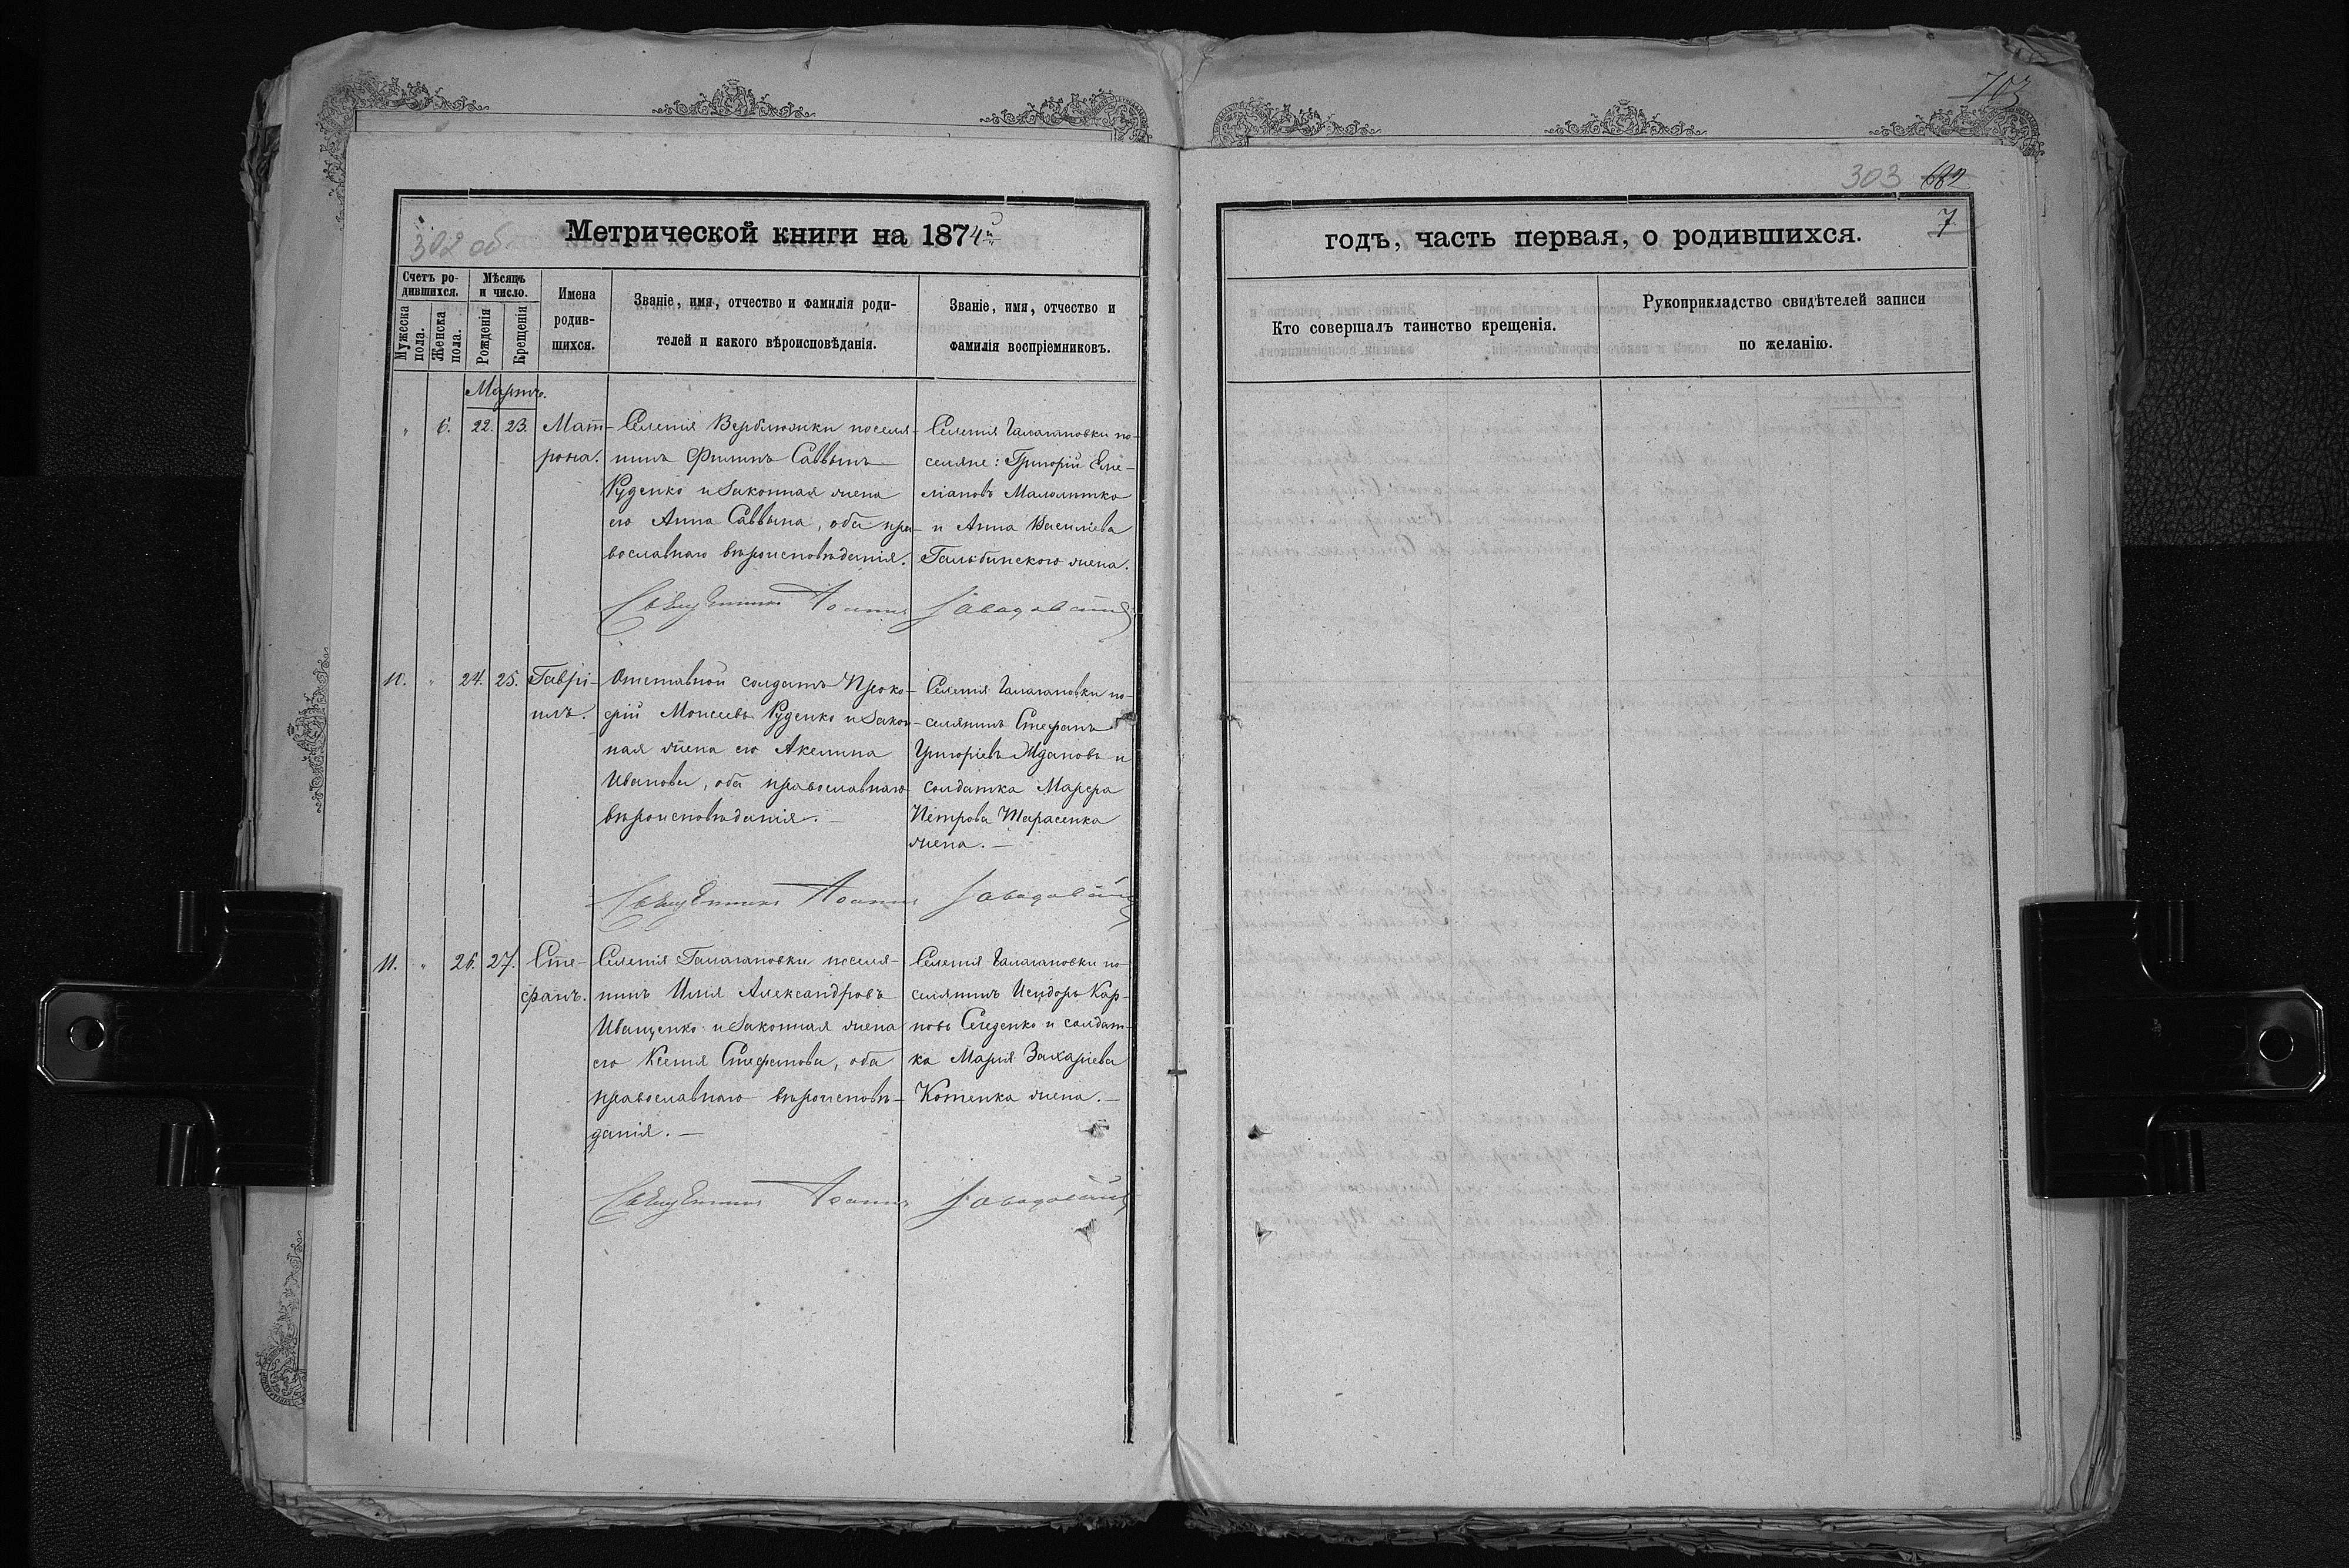 703
303 682
302 об
Метрической книги на 1874й
Счетъ ро-
дившихся.
Мужеска пола.
Женска пола.
Мѣсяцъ
и число.
Рожденія
Крещенія
Имена
родив-
шихся.
Званіе, имя, отчество и фамилія роди-
телей и какого вѣроисповѣданія.
Званіе, имя, отчество и
фамилія воспріемниковъ.
Мартъ.
" 6. 22. 23. Мат-
рона.
Селенія Верблюжки поселя-
нинъ Филипъ Саввинъ
Руденко и законная жена
его Анна Саввина, оба пра-
вославнаго вѣроисповѣданія.
Селенія Галагановки по-
селяне: Григорій Еме-
ліановъ
и Анна Василіева
жена.
Священникъ Іоаннъ Завадовскій
11. " 24. 25. Гаврі-
илъ.
Отставной солдатъ Проко-
фій Моисеевъ Руденко и закон-
ная жена его Акелина
Иванова, оба православнаго
вѣроисповѣданія. —
Селенія Галагановки по-
селянинъ Стефанъ
Григоріевъ Ждановъ и
солдатка Марфа
Петрова Тарасенка
жена. —
Священникъ Іоаннъ Завадовскій
11. " 26. 27. Сте-
фанъ.
Селенія Галагановки поселя-
нинъ Илія Александровъ
Иващенко и законная жена
его Ксенія Стефанова, оба
православнаго вѣроисповѣ-
данія. —
Селенія Галагановки по-
селянинъ Исидоръ Кар-
повъ и солдат-
ка Марія Захаріева
Котенка жена. —
Священникъ Іоаннъ Завадовскій
годъ, часть первая, о родившихся.
7
Кто совершалъ таинство крещенія.
Рукоприкладство свидѣтелей записи
по желанію.